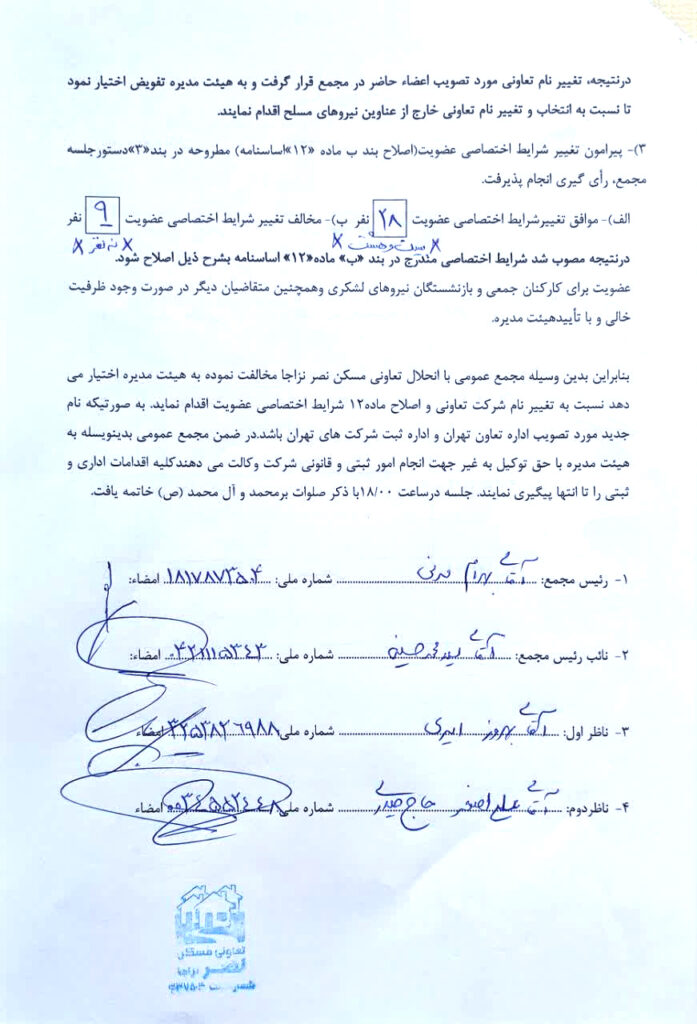 درنتیجه، تغییر نام تعاونی مورد تصویب اعضاء حاضر در مجمع قرار گرفت و به هیئت مدیره تفویض اختیار نمود
تا نسبت به انتخاب و تغییر نام تعاونی خارج از عناوین نیروهای مسلح اقدام نمایند.
۳)- پیرامون تغییر شرایط اختصاصی عضویت(اصلاح بند ب ماده «۱۲»اساسنامه) مطروحه در بند«۳»دستورجلسه
مجمع، رأی گیری انجام پذیرفت.
الف)- موافق تغییرشرایط اختصاصی عضویت ۲۸ نفر ب)- مخالف تغییر شرایط اختصاصی عضویت ۹ نفر
x بیست و هشت x x نه نفر x
درنتیجه مصوب شد شرایط اختصاصی مندرج در بند «ب» ماده«۱۲» اساسنامه بشرح ذیل اصلاح شود.
عضویت برای کارکنان جمعی و بازنشستگان نیروهای لشکری وهمچنین متقاضیان دیگر در صورت وجود ظرفیت
خالی و با تأییدهیئت مدیره.
بنابراین بدین وسیله مجمع عمومی با انحلال تعاونی مسکن نصر نزاجا مخالفت نموده به هیئت مدیره اختیار می
دهد نسبت به تغییر نام شرکت تعاونی و اصلاح ماده۱۲ شرایط اختصاصی عضویت اقدام نماید. به صورتیکه نام
جدید مورد تصویب اداره تعاون تهران و اداره ثبت شرکت های تهران باشد.در ضمن مجمع عمومی بدینوسله به
هیئت مدیره با حق توکیل به غیر جهت انجام امور ثبتی و قانونی شرکت وکالت می دهندکلیه اقدامات اداری و
ثبتی را تا انتها پیگیری نمایند. جلسه درساعت ۱۸/۰۰با ذکر صلوات برمحمد و آل محمد (ص) خاتمه یافت.
۱- رئیس مجمع: آقای بهرام مدنی شماره ملی: ۱۸۱۷۸۷۳۵۰۴ امضاء:
۲- نائب رئیس مجمع: آقای سید محمد حسینی شماره ملی: امضاء:
۳- ناظر اول: آقای بهروز امیری شماره ملی ۳۲۵۳۸۲۶۹۸۸ امضاء
۴- ناظردوم: آقای علی اصغر حاج حیدری شماره ملی امضاء
تعاونی مسکن
نصر نزاجا